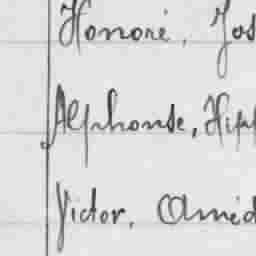 Honoré, Jos
Alphonse, Hipp
Victor, Améd